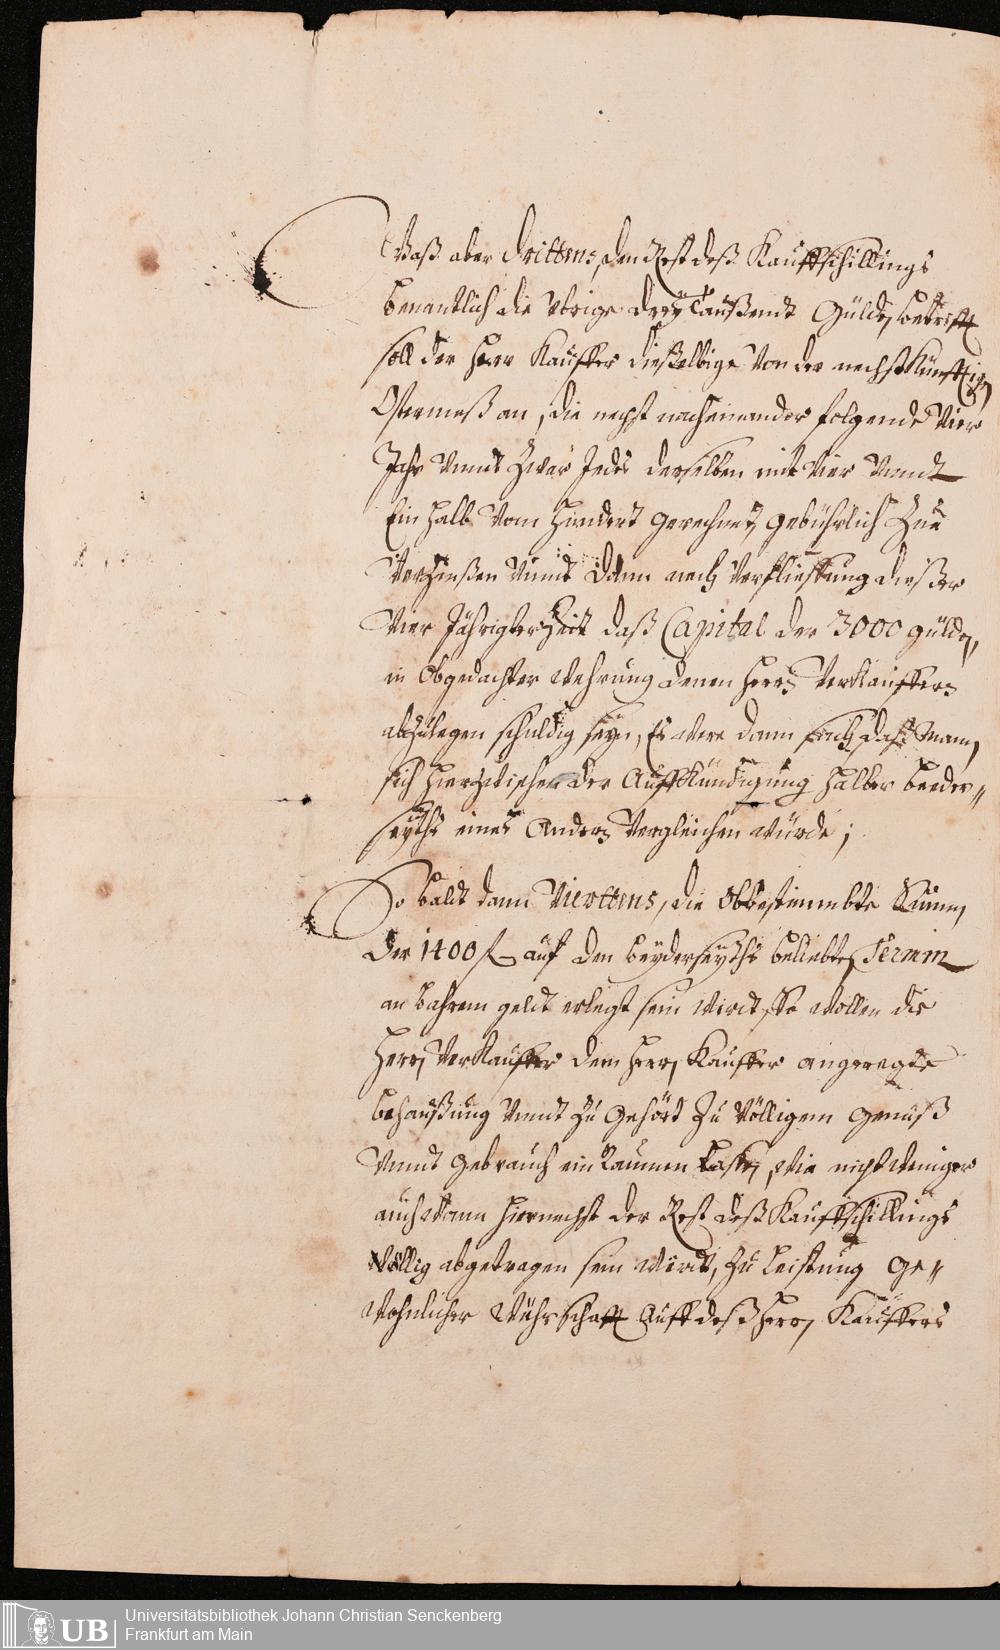 Waß aber Drittens, den Rest deß Kauffschillings
benantlich die vbrige drey Taußendt Gülden betrifft
soll der Herr Kauffer dießelbige von der nechst Künfftigen
Ostermeß an, die nechst nacheinander folgende Vier
Jahr vnndt zwar Jedes derselben mit vier vnndt
Ein halb vom hundert gerechnet, gebührlich zue
Verzinßen vnndt dann nach verfliessung dießer
vier Jährigter Zeit daß Capital der 3000 gülden,
in Obgedachter wehrung denen Herrn Verkauffern
abzulegen schuldig seyn, Es were dann sach, daß Mann,
sich hierzwischen der Auffkündigung halber beeder„
seyths eines Andern vergleichen würde;
So baldt dann Viertens, die Obbestimmbte Summ,
der 1400 fl auf den beyderseyths beliebten Termin
an bahrem geldt erlegt sein wirdt, So wollen die
Herrn Verkauffer dem Herrn Kauffer angeregte
behaußung vnndt zu gehört zu völligem genuß
vnndt gebrauch ein Raumen lassen, wie nicht weniger
auch wann hiernechst der Rest deß Kauffschillings
völlig abgetragen sein wirdt, zu leistung ge„
wohnlicher Wührschafft Auff deß Herrn Kauffers
UB
Universitätsbibliothek Johann Christian Senckenberg
Frankfurt am Main